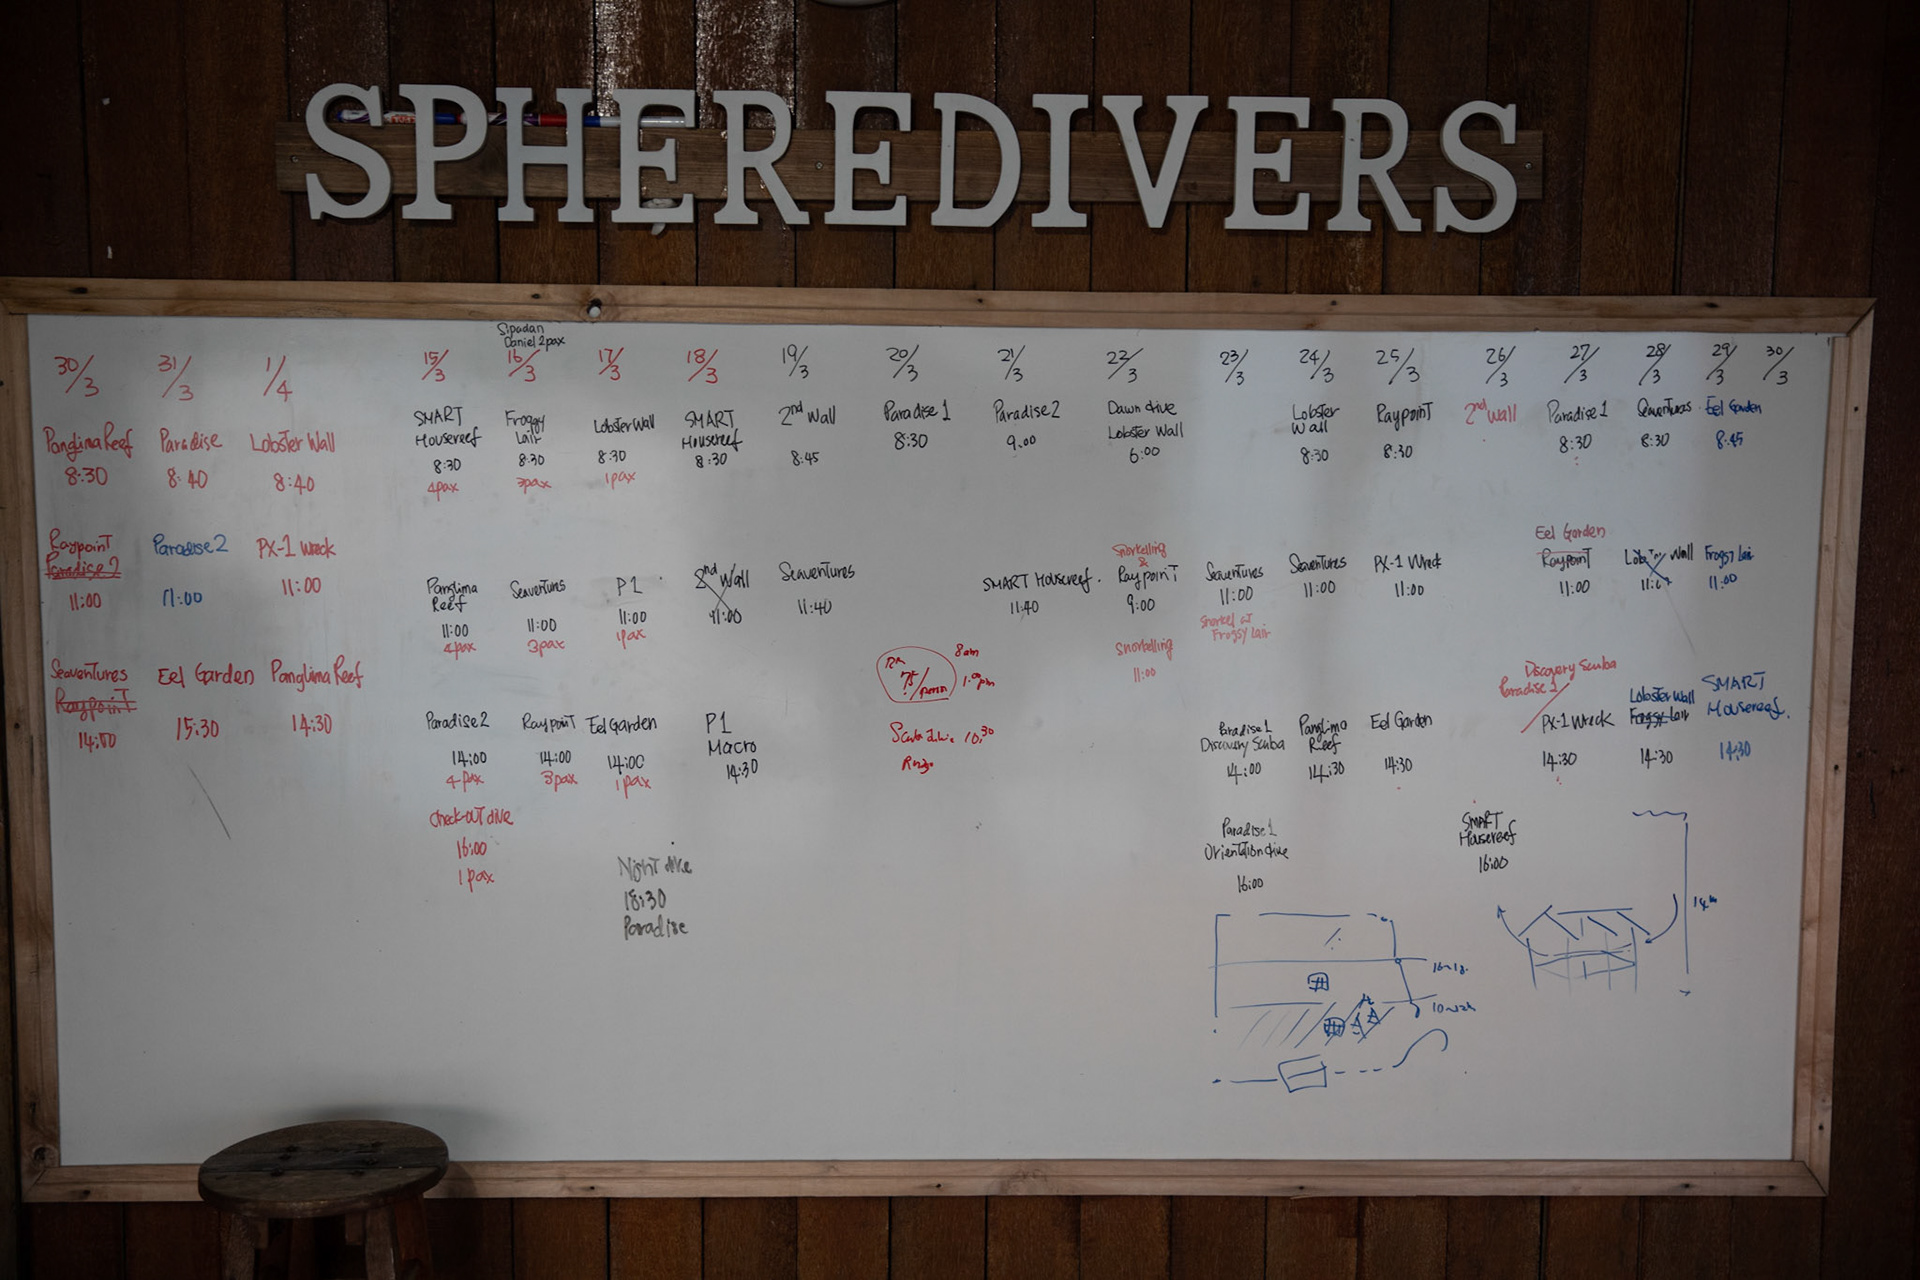 SPHEREDIVERS
Sipadan
Daniel 2pax
30/3 31/3 1/4 15/3 16/3 17/3 18/3 19/3 20/3 21/3 22/3 23/3 24/3 25/3 26/3 27/3 28/3 29/3 30/3
Panglima Reef
8:30
Raypoint
Paradise 2
11:00
Seaventures
Raypoint
14:00
Paradise
8:40
Paradise 2
11:00
Eel Garden
15:30
Lobster Wall
8:40
PX-1 Wreck
11:00
Panglima Reef
14:30
SMART
Housereef
8:30
4pax
Panglima
Reef
11:00
4pax
Paradise 2
14:00
4pax
Check-out dive
16:00
1pax
Froggy
Lair
8:30
3pax
Seaventures
11:00
3pax
Raypoint
14:00
3pax
Lobster Wall
8:30
1pax
P1
11:00
1pax
Eel Garden
14:00
1pax
Night dive
18:30
Paradise
SMART
Housereef
8:30
2nd Wall
11:00
P1
Macro
14:30
2nd Wall
8:45
Seaventures
11:40
Paradise 1
8:30
75/person
8am
Scuba 10.30
Paradise 2
9.00
SMART Housereef.
11:40
Dawn dive
Lobster Wall
6:00
Snorkelling
&
Raypoint
9:00
Snorkelling
11:00
Seaventures
11:00
Snorkel at
Froggy Lair
Paradise 1
Discovery Scuba
14:00
Paradise 1
Orientation dive
16:00
Lobster
Wall
8:30
Seaventures
11:00
Panglima
Reef
14:30
Raypoint
8:30
PX-1 Wreck
11:00
Eel Garden
14:30
2nd Wall
SMART
Housereef
16:00
Paradise 1
8:30
Eel Garden
Raypoint
11:00
Discovery Scuba
Paradise 2
PX-1 Wreck
14:30
Seaventures
8:30
Lobster Wall
Lobster Wall
Froggy Lair
14:30
Eel Garden
8:45
Froggy Lair
11:00
SMART
Housereef.
14:30
14m